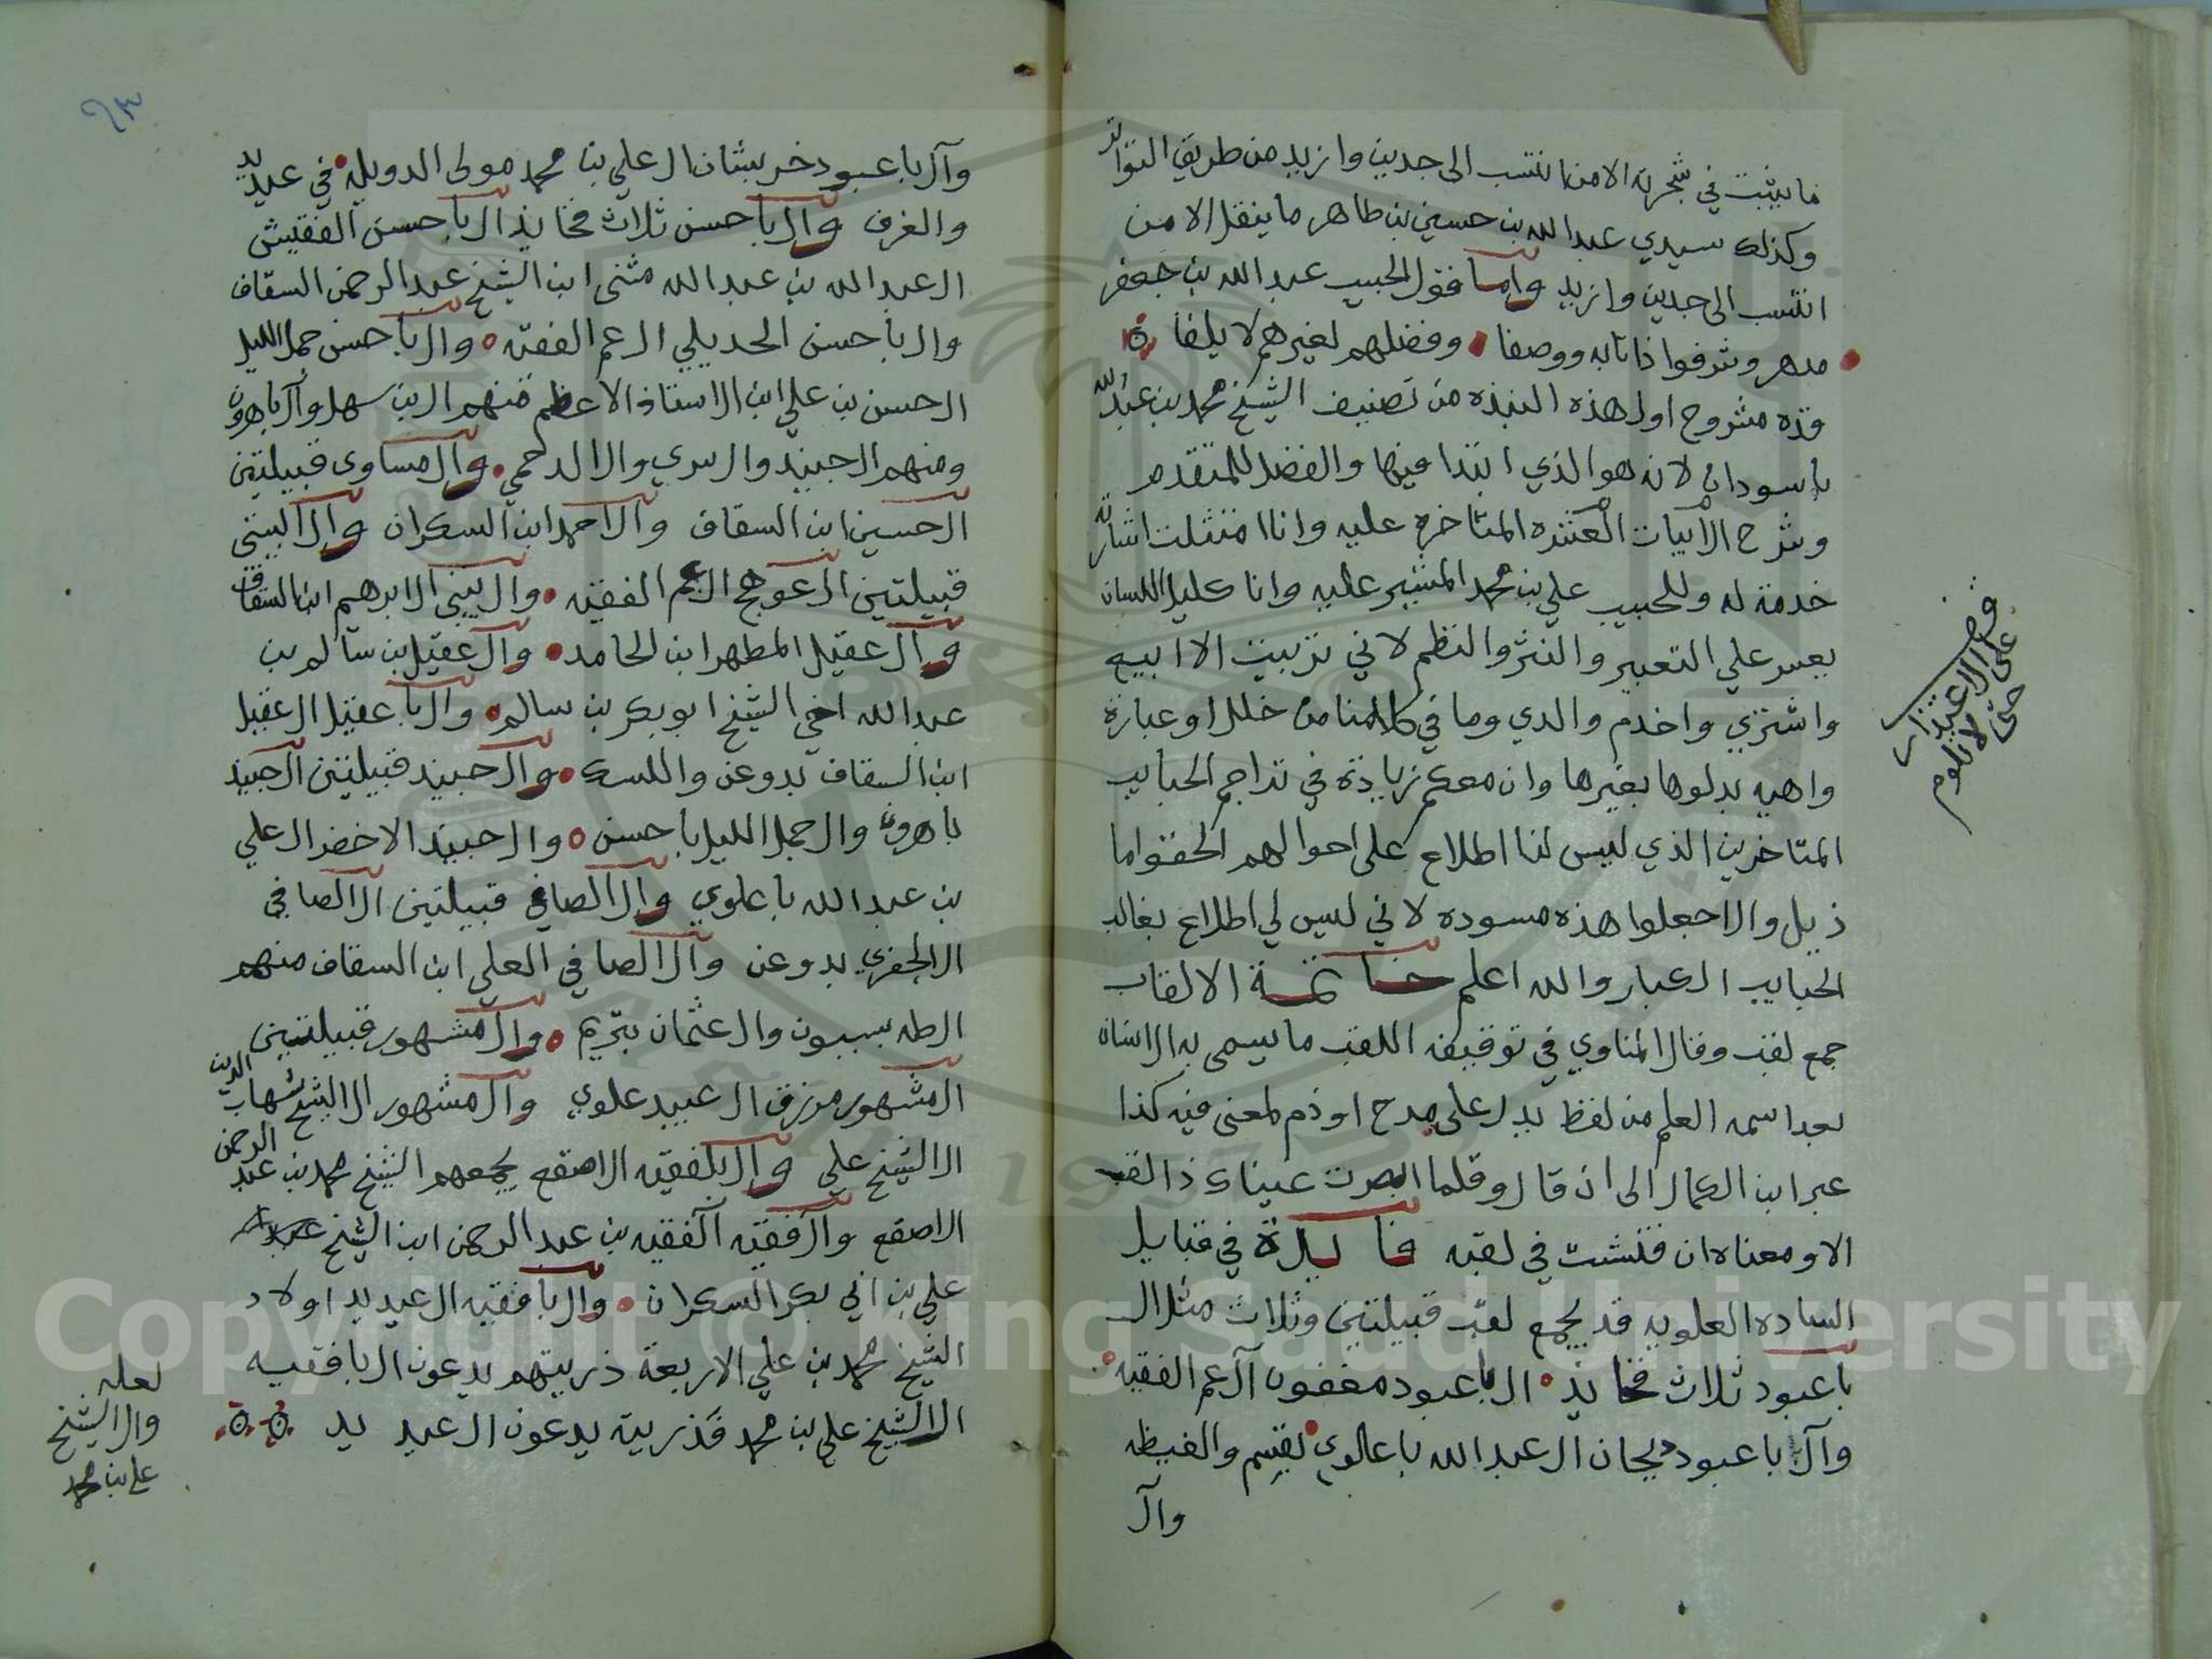 ما يثبت في شجرته الا من انتسب الى جدين وازيد من طريق التواتر
وكذلك سيدي عبدالله بن حسين بن طاهر ما ينقل الا من
انتسب الى جدين وازيد واما قول الحبيب عبدالله بن جعفر
مدهر وشرفوا ذاتا به ووصفا وفضلهم لغيرهم لا يلفا
مشروح اول هذه النبذه من تصنيف الشيخ محمد بن عبدالله
باسودان لانه هو الذي ابتدا فيها والفضل للمتقدم
وشرح الابيات العشره المتاخره عليه وانا امتثلت اشارته
خدمة له وللحبيب علي بن محمد المشير عليه وانا كليل اللسان
يعسر علي التعبير والنثر والنظم لاني تربيت الا ابيع
واشتري واخدم والدي وما في كلامنا من خلل او عبارة
واهيه بدلوها بغيرها وان معكم زيادة في تراجم الحبايب
المتاخرين الذي ليس لنا اطلاع على احوالهم الحقوا ما
ذيل والا اجعلوا هذه مسوده لاني ليس لي اطلاع بغالب
الحبايب الكبار والله اعلم خاتمة الالقاب
جمع لقب وقال المناوي في توقيفه اللقب ما يسمى به الانسان
بعد اسمه العلم من لفظ يدل على مدح او ذم لمعنى فيه كذا
عبر ابن الكمال الى ان قال وقلما ابصرت عيناك ذا لقب
الا ومعناه ان فتشت في لقبه فايدة في قبايل
الساده العلويه قد يجمع لقب قبيلتين وثلاث مثل ال
باعبود ثلاث فخايذ ال باعبود مغفون آل عم الفقيه
وآل باعبود ديجان ال عبدالله باعلوي بقسم والغيظه
وآل
قف على الاعتذار
حتى لا تلوم
٩٣
وآل باعبود خربشان ال علي بن محمد مولى الدويله في عيديد
والغرف وال باحسن ثلاث فخايذ ال باحسن الفقيش
ال عبدالله بن عبدالله مثنى ابن الشيخ عبدالرحمن السقاف
وال باحسن الحديلي ال عم الفقيه وال باحسن جمل الليل
ال حسن بن علي ابن الاستاذ الاعظم منهم ال بن سهل وآل باهرون
ومنهم ال جنيد وال سري وال القدحمي وال مساوى قبيلتين
ال حسين ابن السقاف وال احمد ابن السكران وال البيتي
قبيلتين ال عوهج ال عم الفقيه وال بيتي ال ابرهيم ابن السقاف
وال عقيل المطهر ابن الحامد وال عقيل بن سالم بن
عبدالله اخي الشيخ ابوبكر بن سالم وال باعقيل ال عقيل
ابن السقاف بدوعن واللسك وال جنيد قبيلتين ال جنيد
باهرون وال جمل الليل باحسن وال جنيد الاخضر ال علي
بن عبدالله باعلوي وال الصافي قبيلتين ال الصافي
ال الجفري بدوعن وال الصافي ال علي ابن السقاف منهم
ال طه سيبون وال عثمان بتريم وال مشهور قبيلتين
ال مشهور مرزق ال عبيد علوي وال مشهور ال الشيخ شهاب الدين
ال الشيخ علي وال بلفقيه الاصقع يجمعهم الشيخ محمد بن عبدالرحمن
الاصقع وال فقيه الفقيه بن عبدالرحمن ابن الشيخ
علي بن ابي بكر السكران وال بافقيه ال عيديد اولاد
الشيخ محمد بن علي الاربعة ذريتهم يدعون ال بافقيه
الا الشيخ علي بن محمد فذريته يدعون ال عيديد
لعله
وال الشيخ
علي بن محمد
Copyright © King Saud University